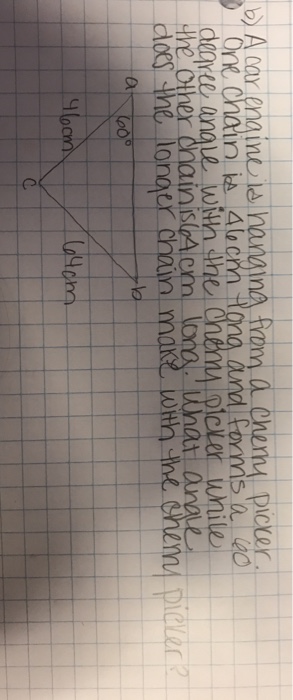 b) A car engine is hanging from a cherry picker.
One chain is 46cm long and forms a 60
degree angle with the cherry picker while
the other chain is 64cm long. What angle
does the longer chain make with the cherry picker?
a
60°
b
46cm
64cm
c